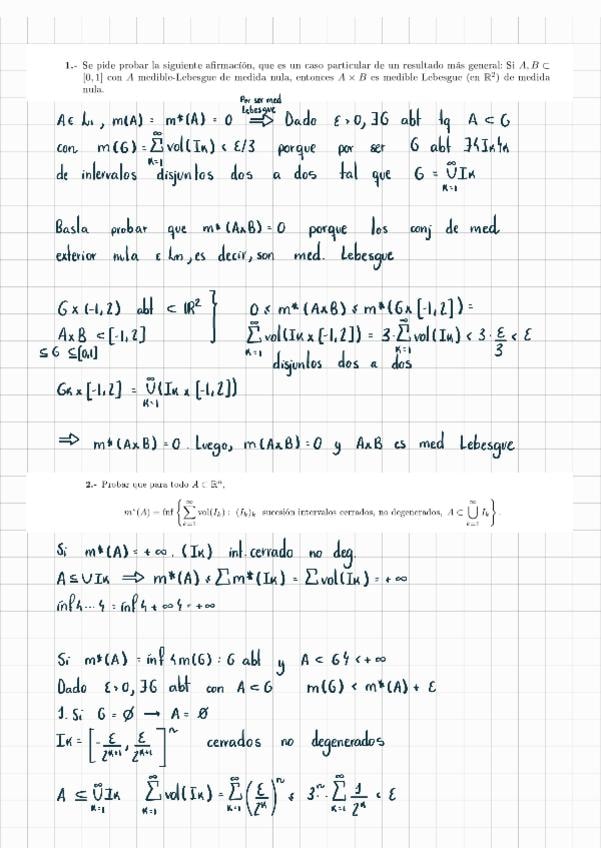 1.- Se pide probar la siguiente afirmación, que es un caso particular de un resultado más general: Si A, B ⊂
[0,1] con A medible-Lebesgue de medida nula, entonces A × B es medible Lebesgue (en ℝ²) de medida
nula.
Por ser med
Lebesgue
A ∈ L₁, m(A) = m*(A) = 0 ⟹ Dado ε>0, ∃G abt tq A ⊂ G
con m(G) = ∑_{k=1}^∞ vol(Iₖ) < ε/3 porque por ser G abt ∃{Iₖ}ₖ
de intervalos disjuntos dos a dos tal que G = ⋃_{k=1}^∞ Iₖ
Basta probar que m*(A×B) = 0 porque los conj de med
exterior nula ∈ Lₙ, es decir, son med. Lebesgue
G × (-1,2) abt ⊂ ℝ² } 0 ≤ m*(A×B) ≤ m*(G × [-1,2]) =
A×B ⊂ [-1,2] ∑_{k=1}^∞ vol(Iₖ × [-1,2]) = 3·∑_{k=1}^∞ vol(Iₖ) < 3·ε/3 < ε
⊆G ⊆[0,1] disjuntos dos a dos
Gₖ × [-1,2] = ⋃_{k=1}^∞ (Iₖ × [-1,2])
⟹ m*(A×B) = 0. Luego, m(A×B) = 0 y A×B es med Lebesgue
2.- Probar que para todo A ⊂ ℝⁿ,
m*(A) = inf { ∑_{k=1}^∞ vol(Iₖ) : (Iₖ)ₖ sucesión intervalos cerrados, no degenerados, A ⊂ ⋃_{k=1}^∞ Iₖ }.
Si m*(A) = +∞. (Iₖ) int. cerrado no deg.
A ⊆ ∪Iₖ ⟹ m*(A) ≤ ∑m*(Iₖ) = ∑vol(Iₖ) = +∞
inf{...} = inf{+∞} = +∞
Si m*(A) = inf{m(G) : G abt y A ⊂ G} < +∞
Dado ε>0, ∃G abt con A ⊂ G m(G) < m*(A) + ε
1. Si G = ∅ → A = ∅
Iₖ = [-ε/2^{k+1}, ε/2^{k+1}]ⁿ cerrados no degenerados
A ⊆ ⋃_{k=1}^∞ Iₖ ∑_{k=1}^∞ vol(Iₖ) = ∑_{k=1}^∞ (ε/2^k)ⁿ ≤ 3ⁿ·∑_{k=1}^∞ 1/2^k < ε